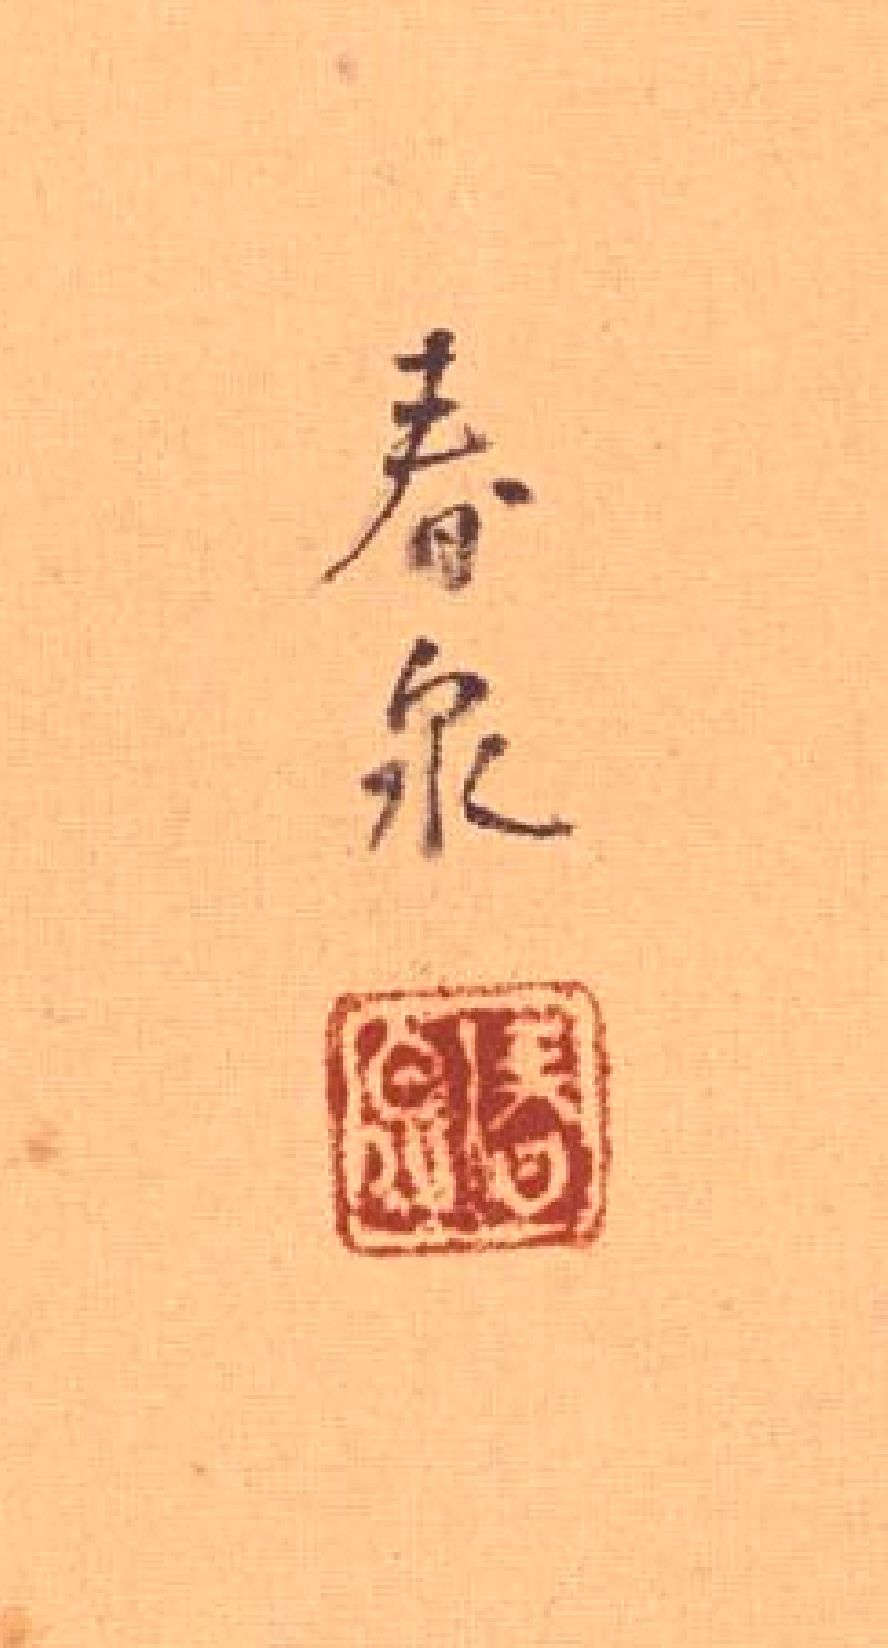 春
泉
春泉